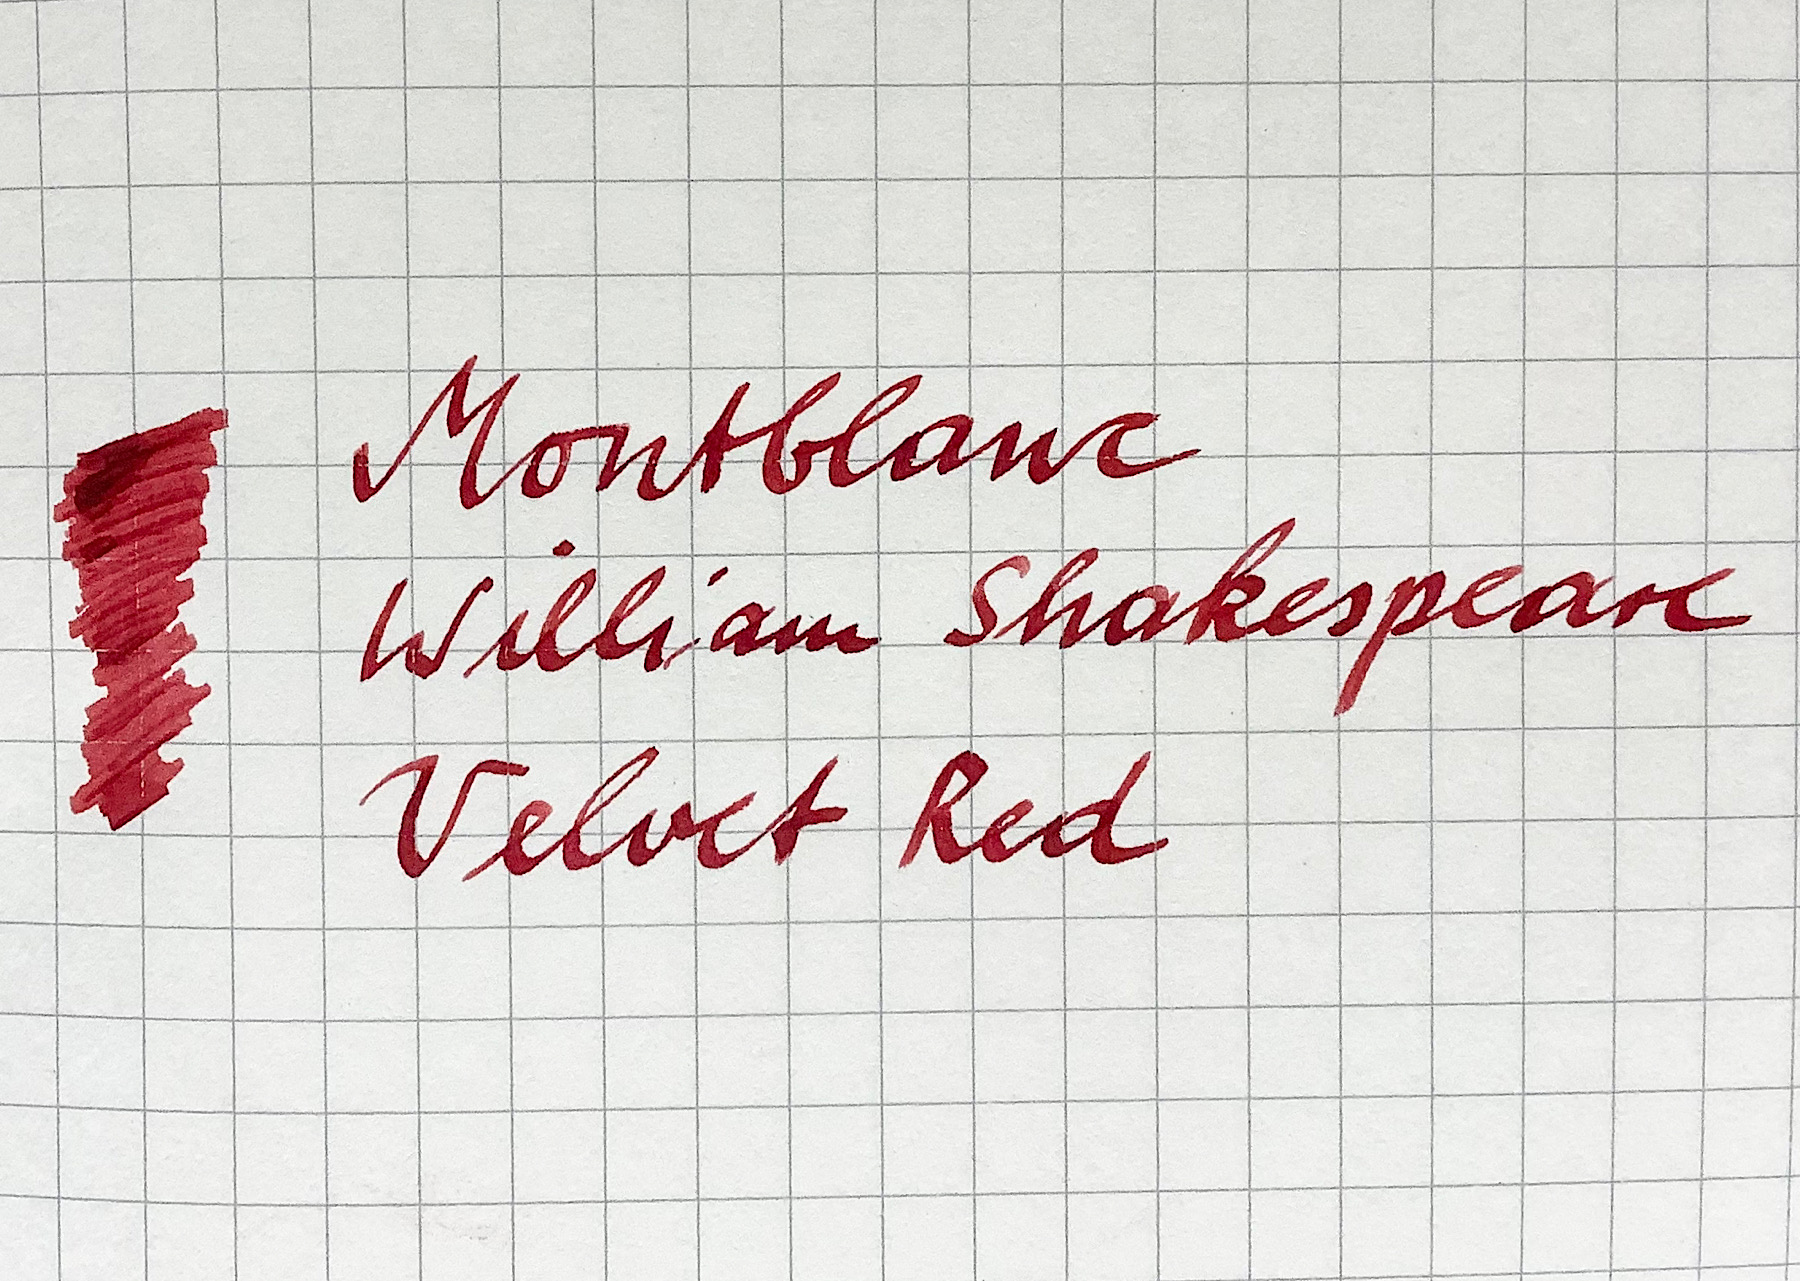 Montblanc
William Shakespeare
Velvet Red